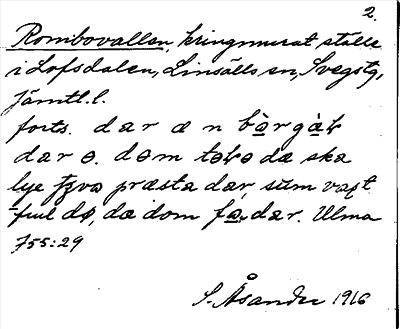 2.
Rombovallen, kringmurat ställe
i Lofsdalen, Linsälls sn, Svegstg,
Jämtl. l.
forts. dar æ n bərgàk
dar ɵ. dɵm tɵkɵ dæ ska
lye præsta dar, sɵm
dø, dæ dom far dar. Ulma
755:29
S. Åsander 1916